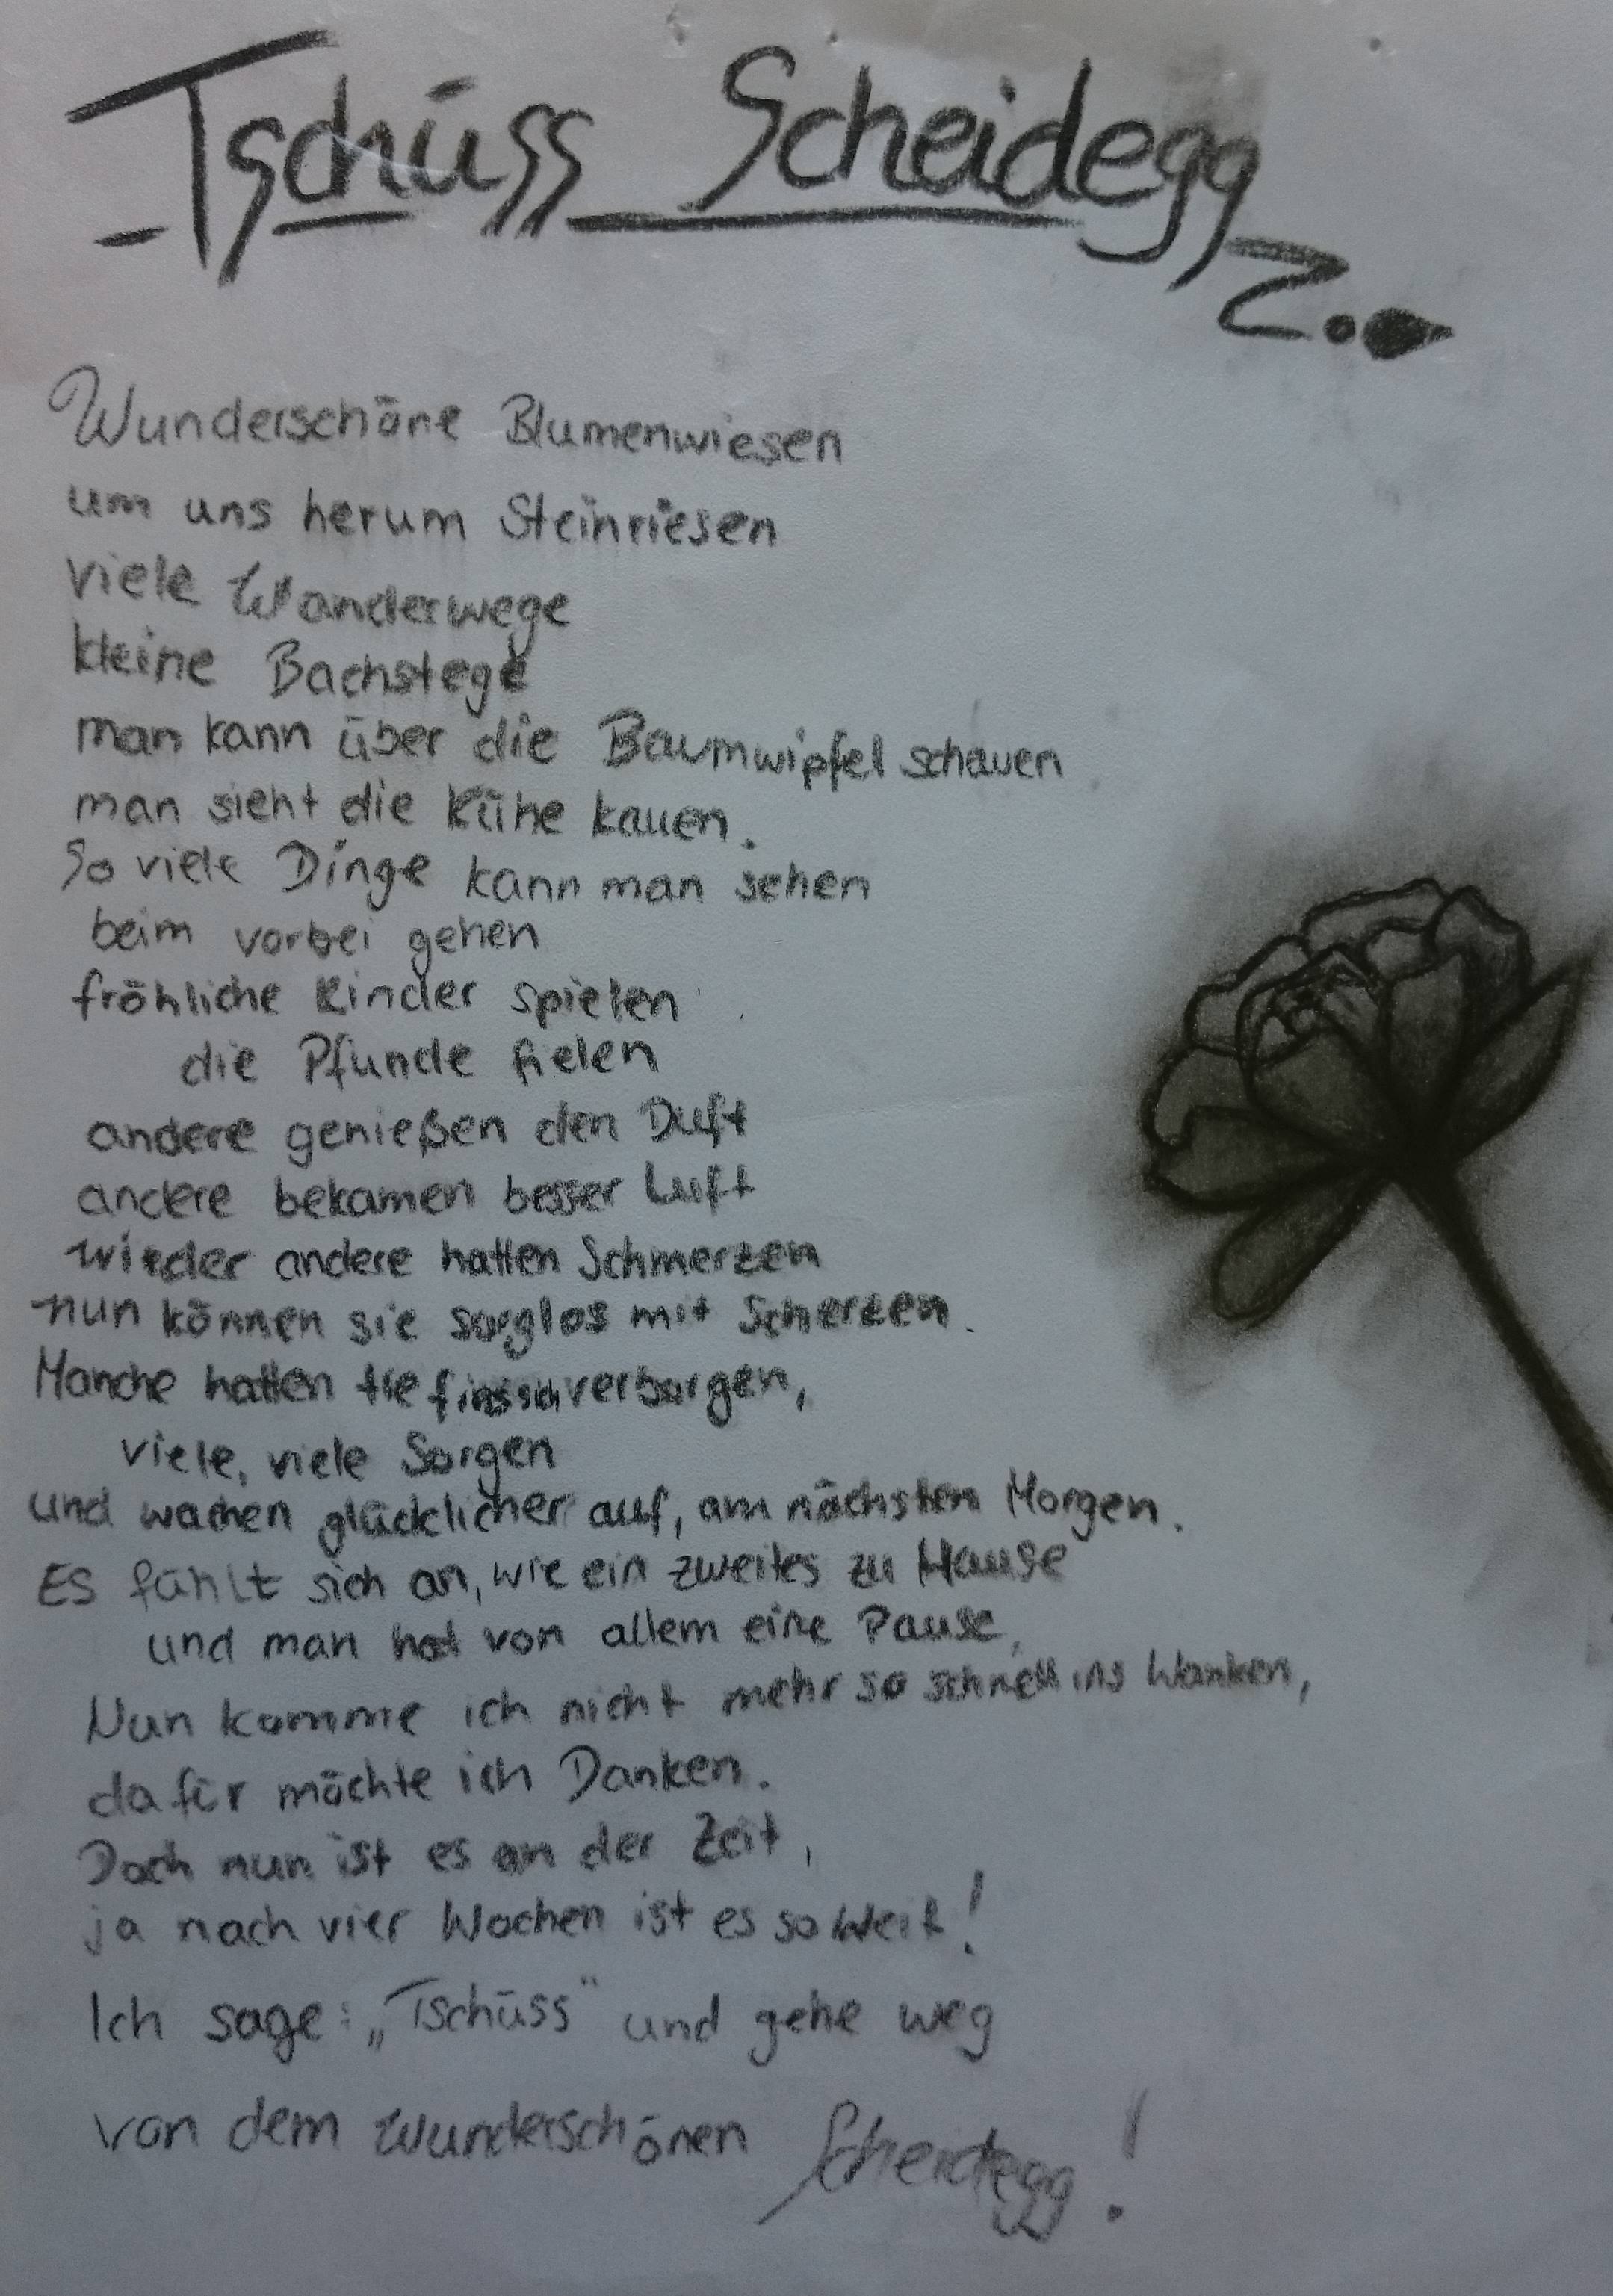 Tschüss Scheidegg
Wunderschöne Blumenwiesen
um uns herum Steinriesen
viele Wanderwege
kleine Bachstege
man kann über die Baumwipfel schauen
man sieht die Kühe kauen.
So viele Dinge kann man sehen
beim vorbei gehen
fröhliche Kinder spielen
die Pfunde fielen
andere genießen den Duft
andere bekamen besser Luft
wieder andere hatten Schmerzen
nun können sie sorglos mit Scherzen.
Manche hatten tief in sich verborgen,
viele, viele Sorgen
und wachen glücklicher auf, am nächsten Morgen.
Es fühlt sich an, wie ein zweites zu Hause
und man hat von allem eine Pause,
Nun komme ich nicht mehr so schnell ins Wanken,
dafür möchte ich Danken.
Doch nun ist es an der Zeit,
ja nach vier Wochen ist es so Weit!
Ich sage: „Tschüss" und gehe weg
von dem Wunderschönen Scheidegg!